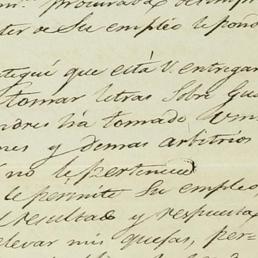 procurava
ter de Su empleo le poño
que está V. entregan
tomar letras Sobre Gua
ha tomado
nes y demas arbitrios
no le pertenece
le permite Su empleo,
resultado y respuesta
elevar mis quejas, per-